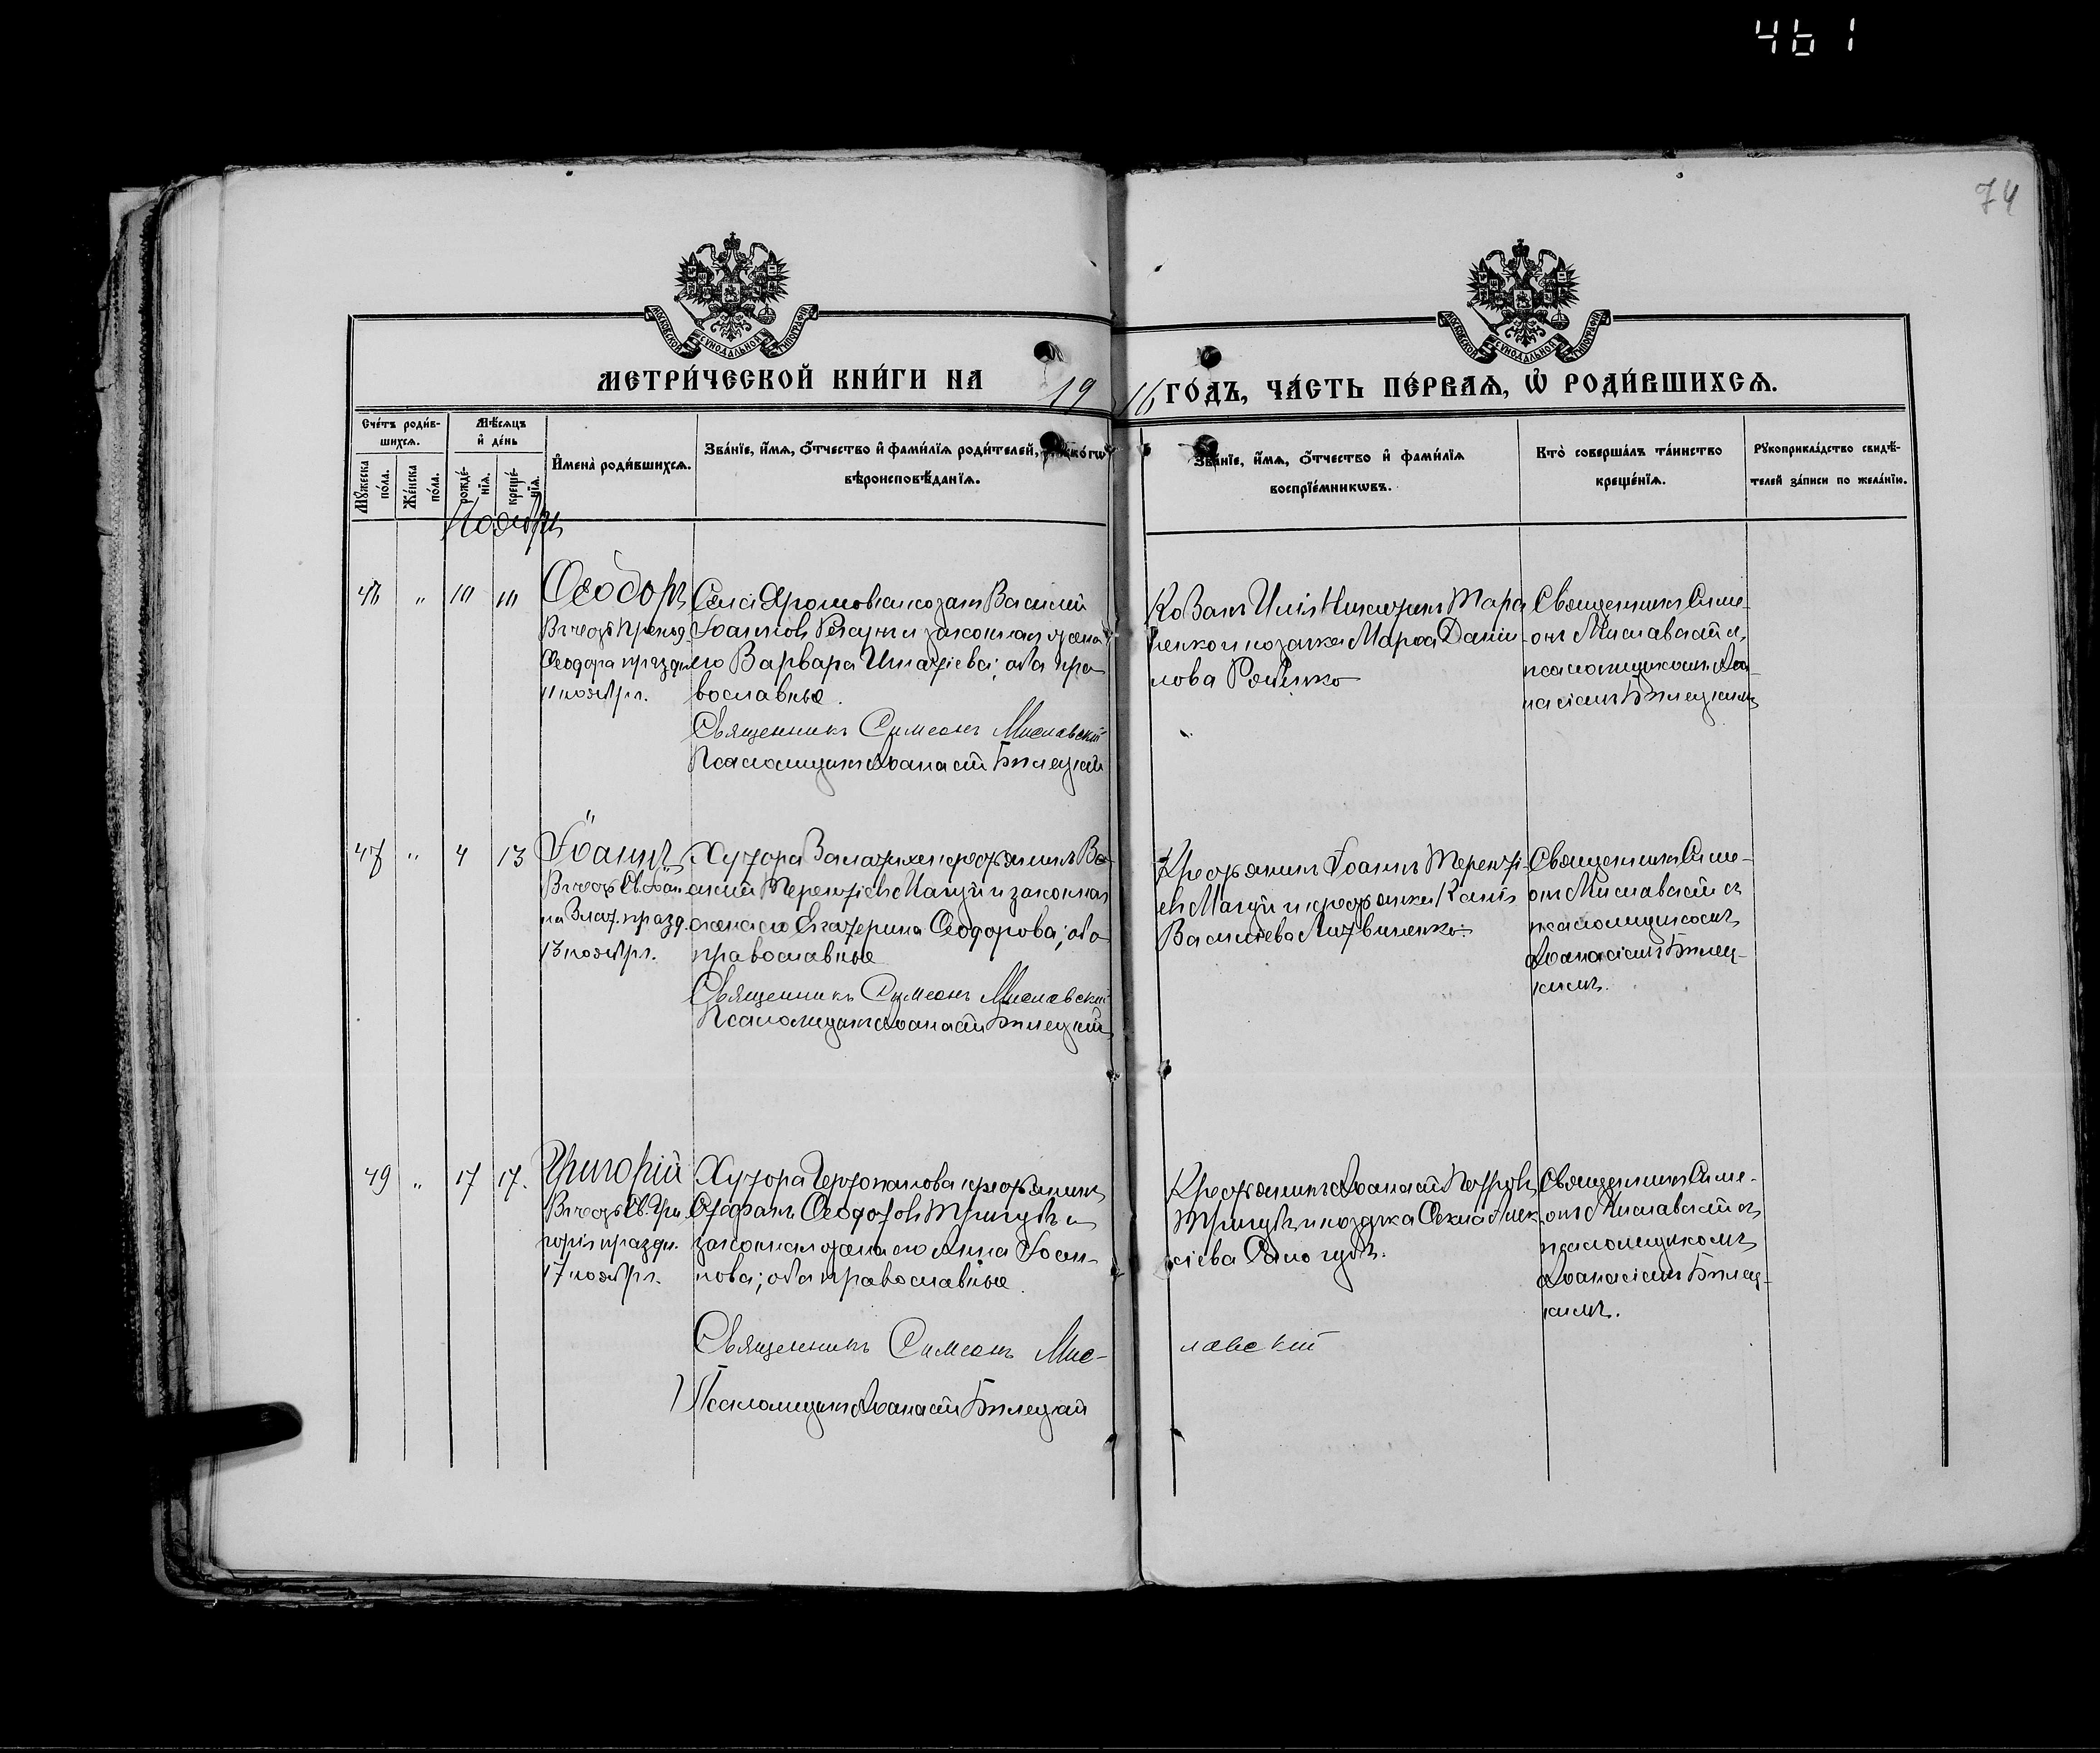 461
74
МОСКОВСКОЙ СУНОДАЛЬНОЙ ТИПОГРАФІИ
МОСКОВСКОЙ СУНОДАЛЬНОЙ ТИПОГРАФІИ
МЕТРИ́ЧЕСКОЙ КНИ́ГИ НА 1916 ГО́ДЪ, ЧА́СТЬ ПЕ́РВАѦ, Ѡ҆ РОДИ́ВШИХСѦ.
Сче́тъ роди́в-
шихсѧ.
Мꙋ́жеска по́ла.
Же́нска по́ла.
Мѣ́сѧцъ
и҆ де́нь
рожде́-
нїѧ.
креще́-
нїѧ.
И҆мена̀ роди́вшихсѧ.
Зва́нїе, и҆́мѧ, ѻ҆́тчество и҆ фами́лїѧ роди́телей, ко́гѡ
вѣроисповѣ́данїѧ.
Зва́нїе, и҆́мѧ, ѻ҆́тчество и҆ фами́лїѧ
воспрїе́мникѡвъ.
Кто̀ соверша́лъ та́инство
креще́нїѧ.
Рꙋкоприкла́дство свидѣ́-
телей за́писи по жела́нїю.
Ноябрь
" 
Ѳеодоръ
Ѳеодора праздн.
11 ноября.
Села козакъ Василій
Іоанновъ и законная жена
его Варвара Игнатіева; оба пра-
вославные.
Священникъ Симеонъ Миславскій
Псаломщикъ Аѳанасій Билецкій
Козакъ Тара-
ненко и козачка Марѳа Даніи-
лова
Священникъ Симе-
онъ Миславскій съ
псаломщикомъ Аѳа-
насіемъ Билецкимъ
47 " 4 13
Іоаннъ
Въ честь Св. Іоан-
на Злат. празд.
13 ноября.
Хутора крестьянинъ Ва-
силій Терентіевъ и законная
жена его Екатерина Ѳеодорова; оба
православные
Священникъ Симеонъ Миславскій
Псаломщикъ Аѳанасій Билецкій
Крестьянинъ Іоаннъ Теренті-
евъ и крестьянка
Васильева Литвиненко.
Священникъ Симе-
онъ Миславскій съ
псаломщикомъ
Аѳанасіемъ Билец-
кимъ.
49 " 17 17.
Григорій
Въ честь Св. Гри-
горія праздн.
17 ноября.
Хутора крестьянинъ
Стефанъ Ѳеодотовъ и
законная жена его Анна Іоан-
нова; оба православные.
Священникъ Симеонъ Мис-
лавскій
Псаломщикъ Аѳанасій Билецкій
Крестьянинъ Аѳанасій Петровъ
и козачка Ѳекла Алек-
сіева
Священникъ Симе-
онъ Миславскій съ
псаломщикомъ
Аѳанасіемъ Билец-
кимъ.